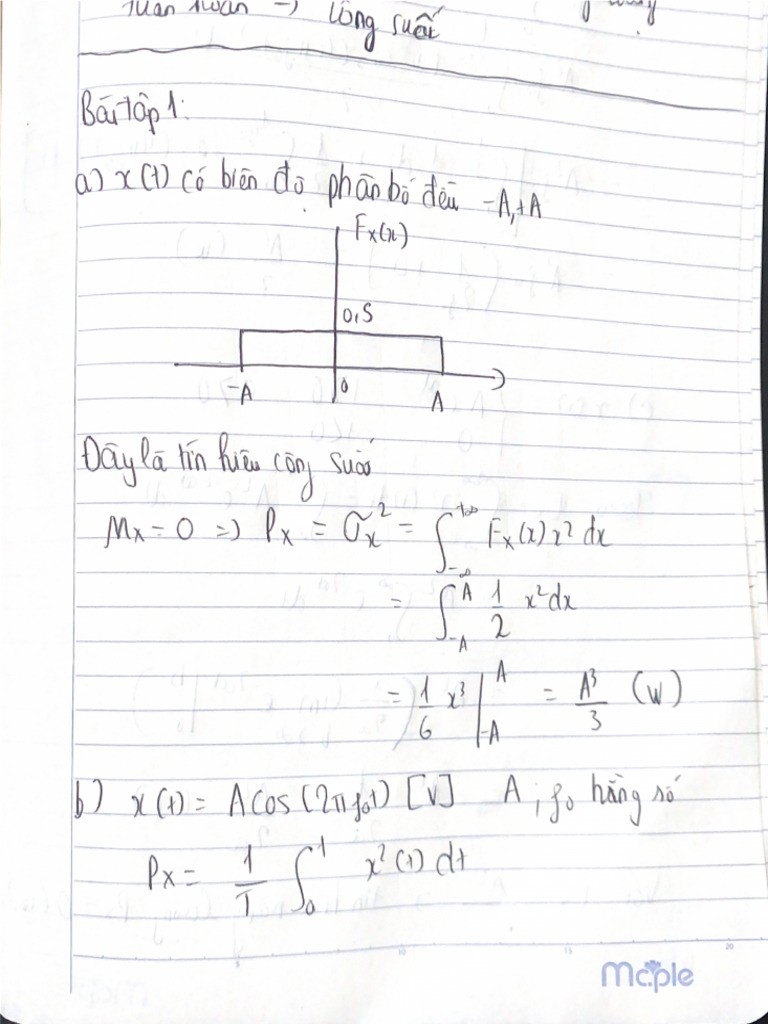 Tuần hoàn → Công suất
Bài tập 1:
a) x(t) có biên độ phân bố đều -A,+A
Fx(x)
0,5
-A 0 A
Đây là tín hiệu công suất
Mx = 0 => Px = σx² = ∫_{-∞}^{+∞} Fx(x) x² dx
= ∫_{-A}^{A} 1/2 x² dx
= 1/6 x³ |_{-A}^{A} = A³/3 (W)
b) x(t) = A cos(2πf₀t) [V] A; f₀ hằng số
Px = 1/T ∫_0^1 x²(t) dt
5 10 15 20
Mc.ple